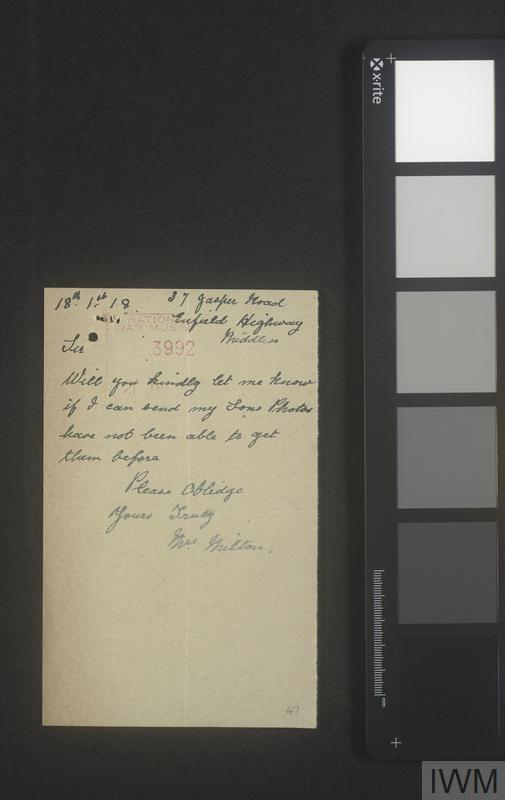 18th 1st 18 37 Jasper Road
Enfield Highway
Middlesx
NATIONAL
WAR MUSEUM
3992
Sir
Will you kindly let me know
if I can send my Sons Photos
have not been able to get
them before
Please Obledge
Yours Truly
Mrs Milton.
47
x-rite
mm
IWM